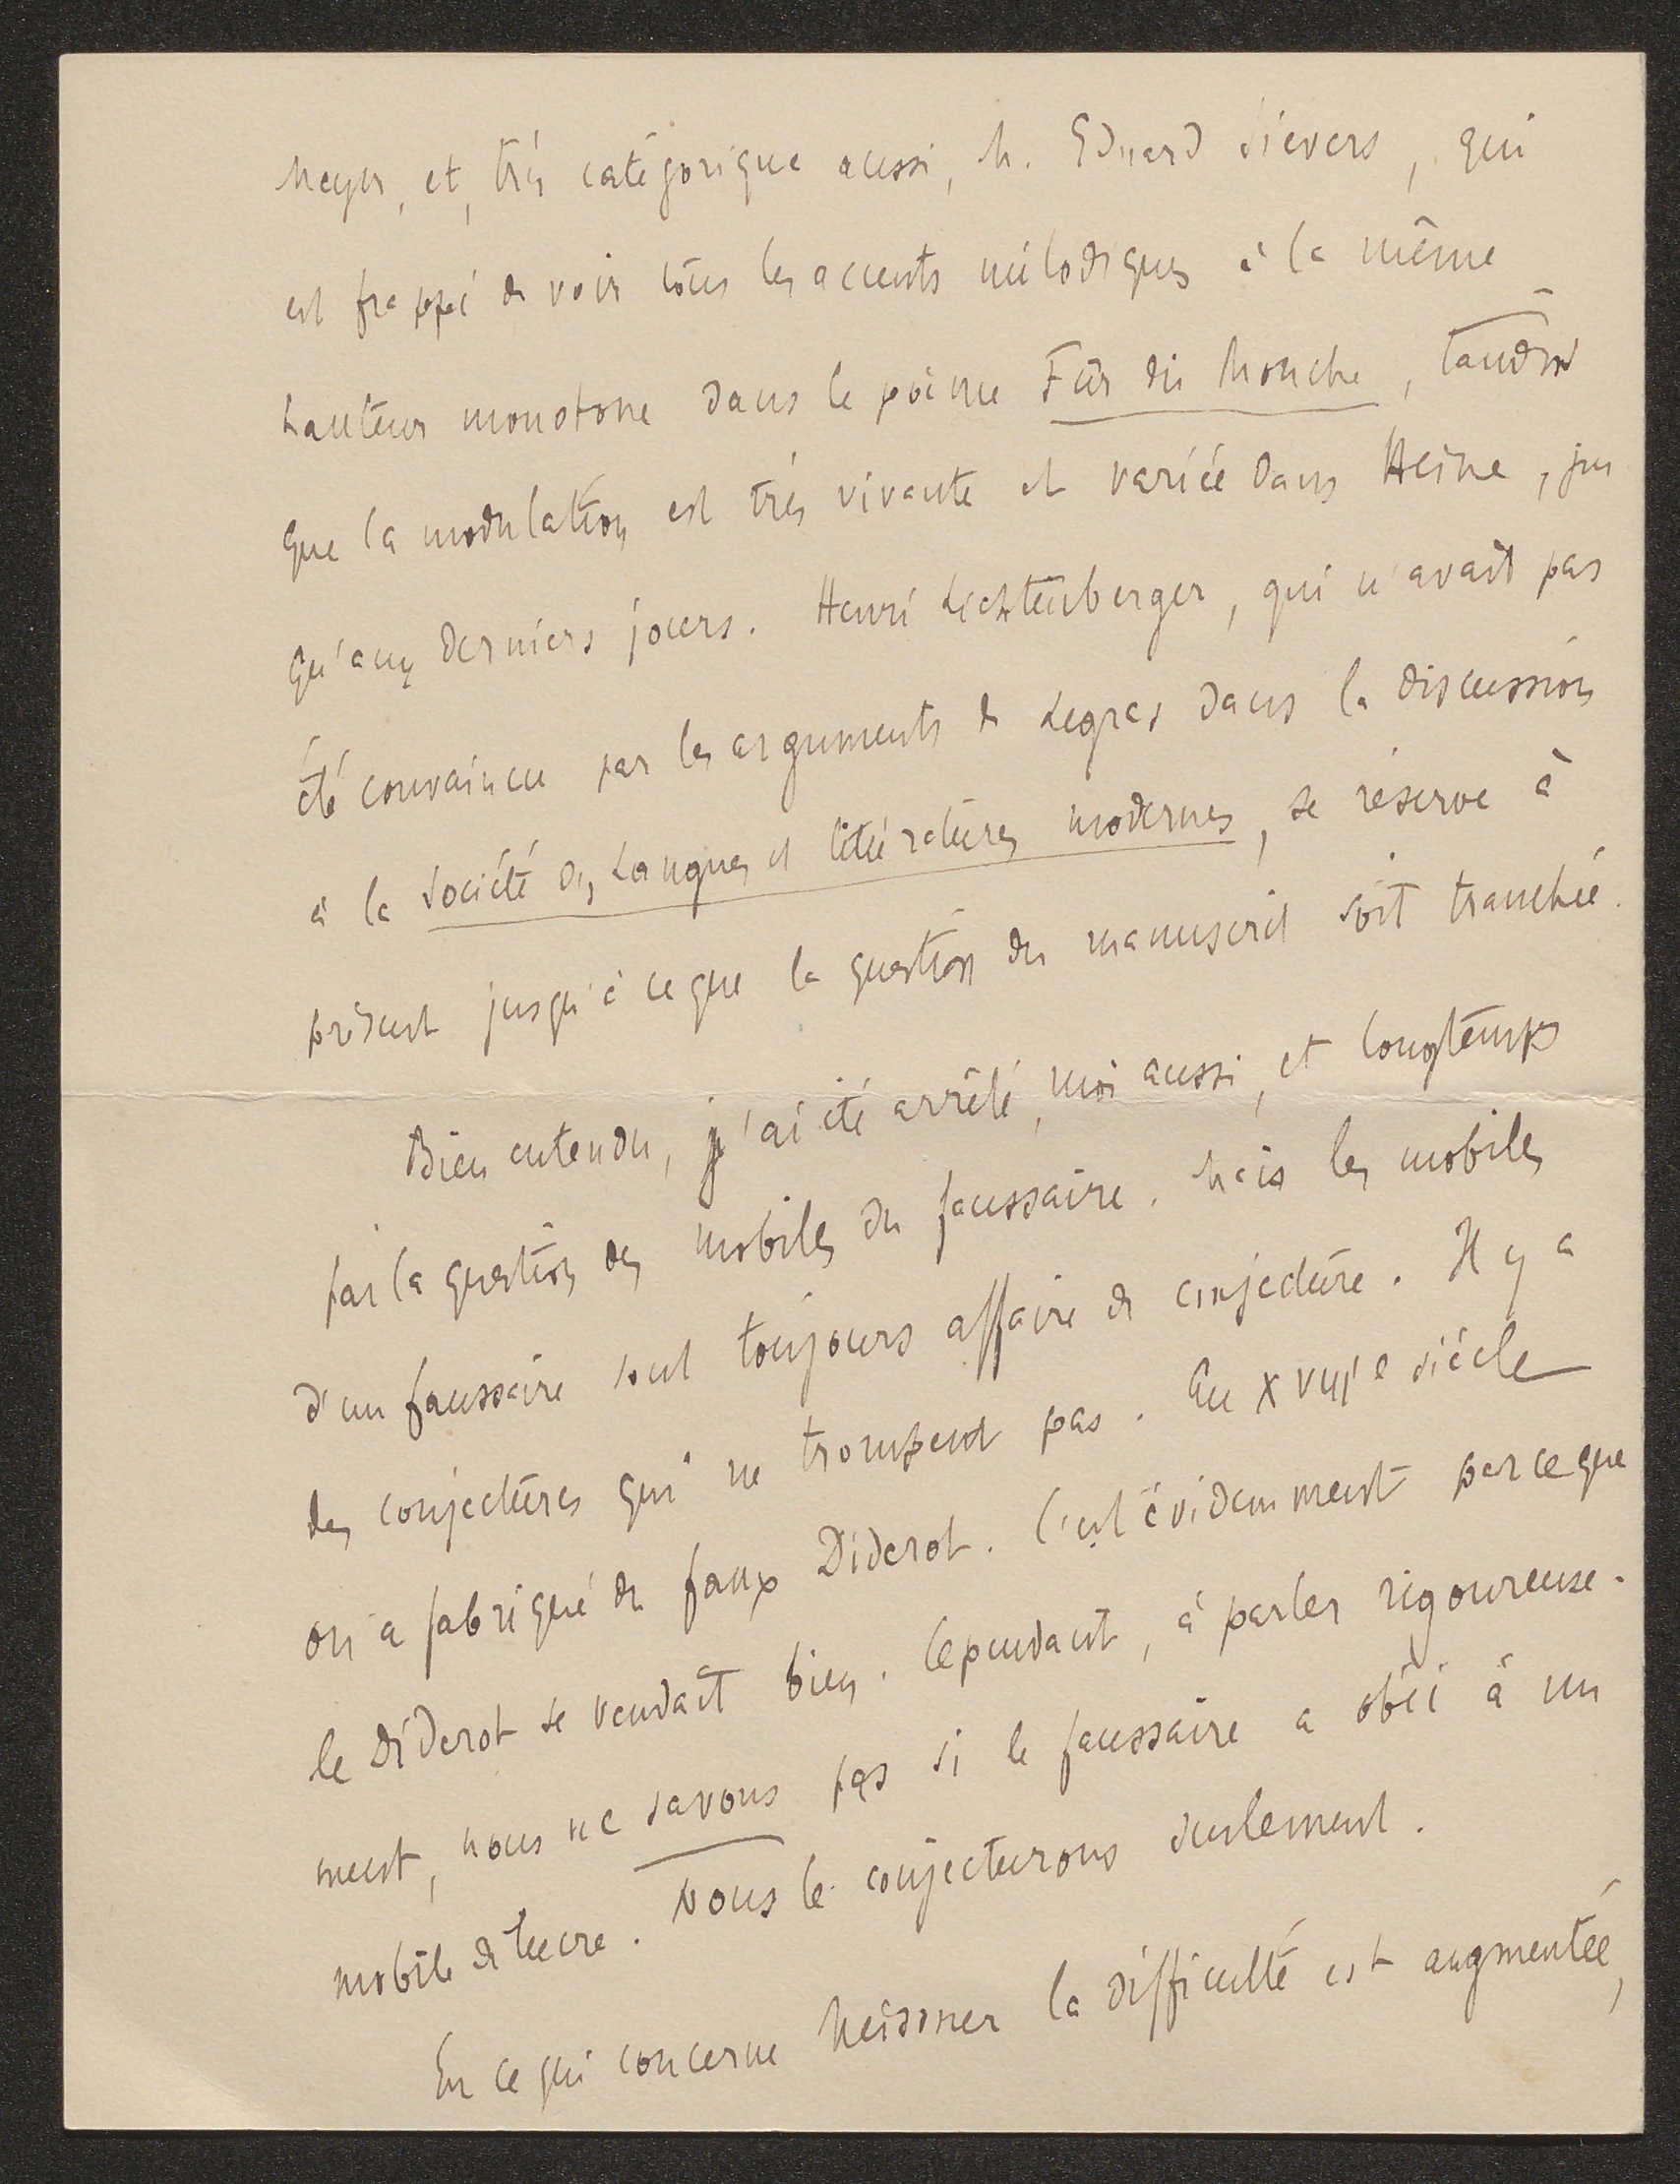 Meyer, et, très catégorique aussi, M. Eduard Sievers, qui
est frappé de voir tous les accents mélodiques à la même
hauteur monotone dans le poème Für die Mouche, tandis
que la modulation est très vivante et variée dans Heine, jus
qu'aux derniers jours. Henri Lichtenberger, qui n'avait pas
été convaincu par les arguments de Legras dans la discussion
à la Société des Langues et littératures modernes, se réserve à
présent jusqu'à ce que la question du manuscrit soit tranchée.
Bien entendu, j'ai été arrêté, moi aussi, et longtemps
par la question des mobiles du faussaire. Mais les mobiles
d'un faussaire sont toujours affaire de conjecture. Il y a
des conjectures qui ne trompent pas. Au XVIIIe siècle
on a fabriqué du faux Diderot. C'est évidemment parce que
le Diderot se vendait bien. Cependant, à parler rigoureuse-
ment, nous ne savons pas si le faussaire a obéi à un
mobile de lucre. Nous le conjecturons seulement.
En ce qui concerne Meissner la difficulté est augmentée,